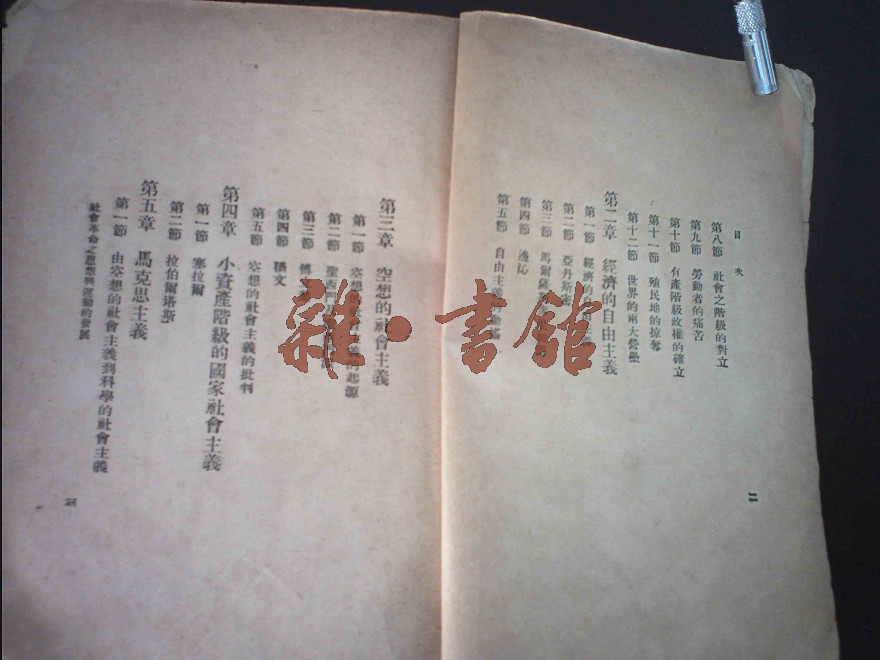 目次
第八節 社會之階級的對立
第九節 勞動者的痛苦
第十節 有產階級政權的確立
第十一節 殖民地的掠奪
第十二節 世界的兩大營壘
第二章 經濟的自由主義
第一節 經濟的
第二節 亞丹斯密
第三節 馬爾薩
第四節 邊沁
第五節 自由主義
二
第三章 空想的社會主義
第一節 空想 的起源
第二節 聖西門
第三節 傅
第四節
第五節 空想的社會主義的批判
第四章 小資產階級的國家社會主義
第一節 塞拉爾
第二節 拉伯爾塔斯
第五章 馬克思主義
第一節 由空想的社會主義到科學的社會主義
社會革命之思想與運動的發展
三
雜·書館